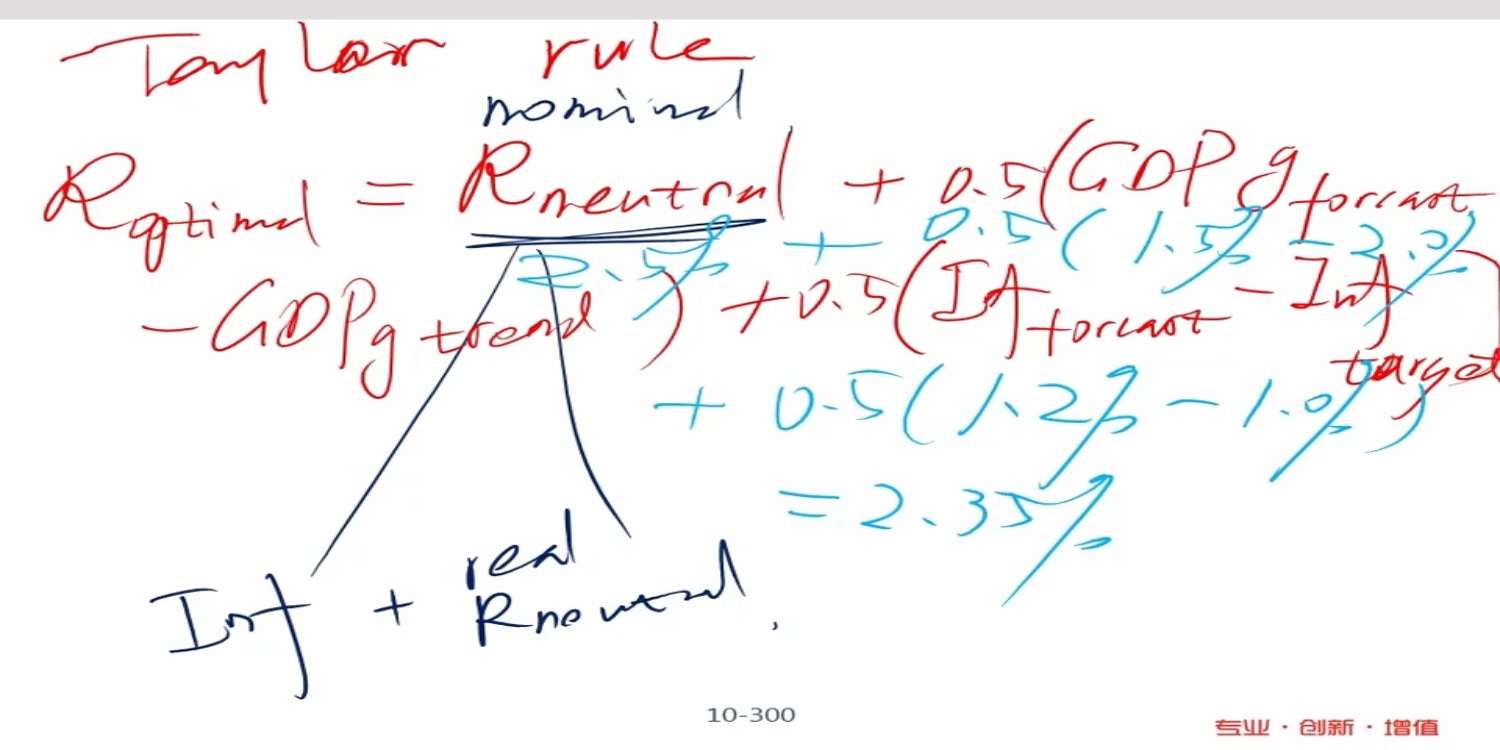 Taylor rule
nominal
Roptimal = Rneutral + 0.5(GDPg forcast
2.5% + 0.5(1.5% - 2.0%)
- GDPg trend) + 0.5(Inf forcast - Inf target)
+ 0.5(1.2% - 1.0%)
= 2.35%
real
Inf + Rneutral.
10-300
专业·创新·增值